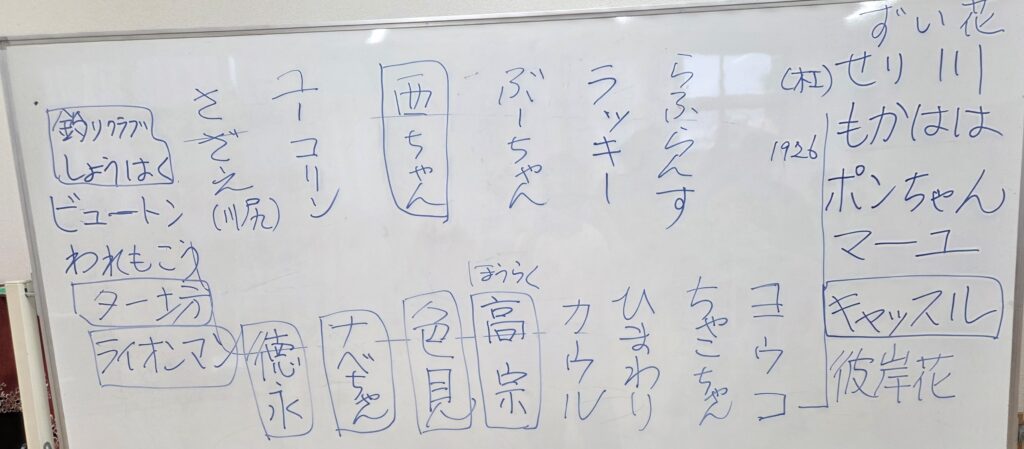 ずい花
(木工)せり川
1926
もかはは
ポンちゃん
マーユ
キャッスル
彼岸花
らぶらんす
ラッキー
ぶーちゃん
西ちゃん
ユーコリン
さざえ
(川尻)
ヨウコ
ちゃこちゃん
ひまわり
カウル
ぼうらく
高宗
色見
ナベちゃん
徳永
釣りクラブ
しょうはく
ビュートン
われもこう
ター坊
ライオンマン